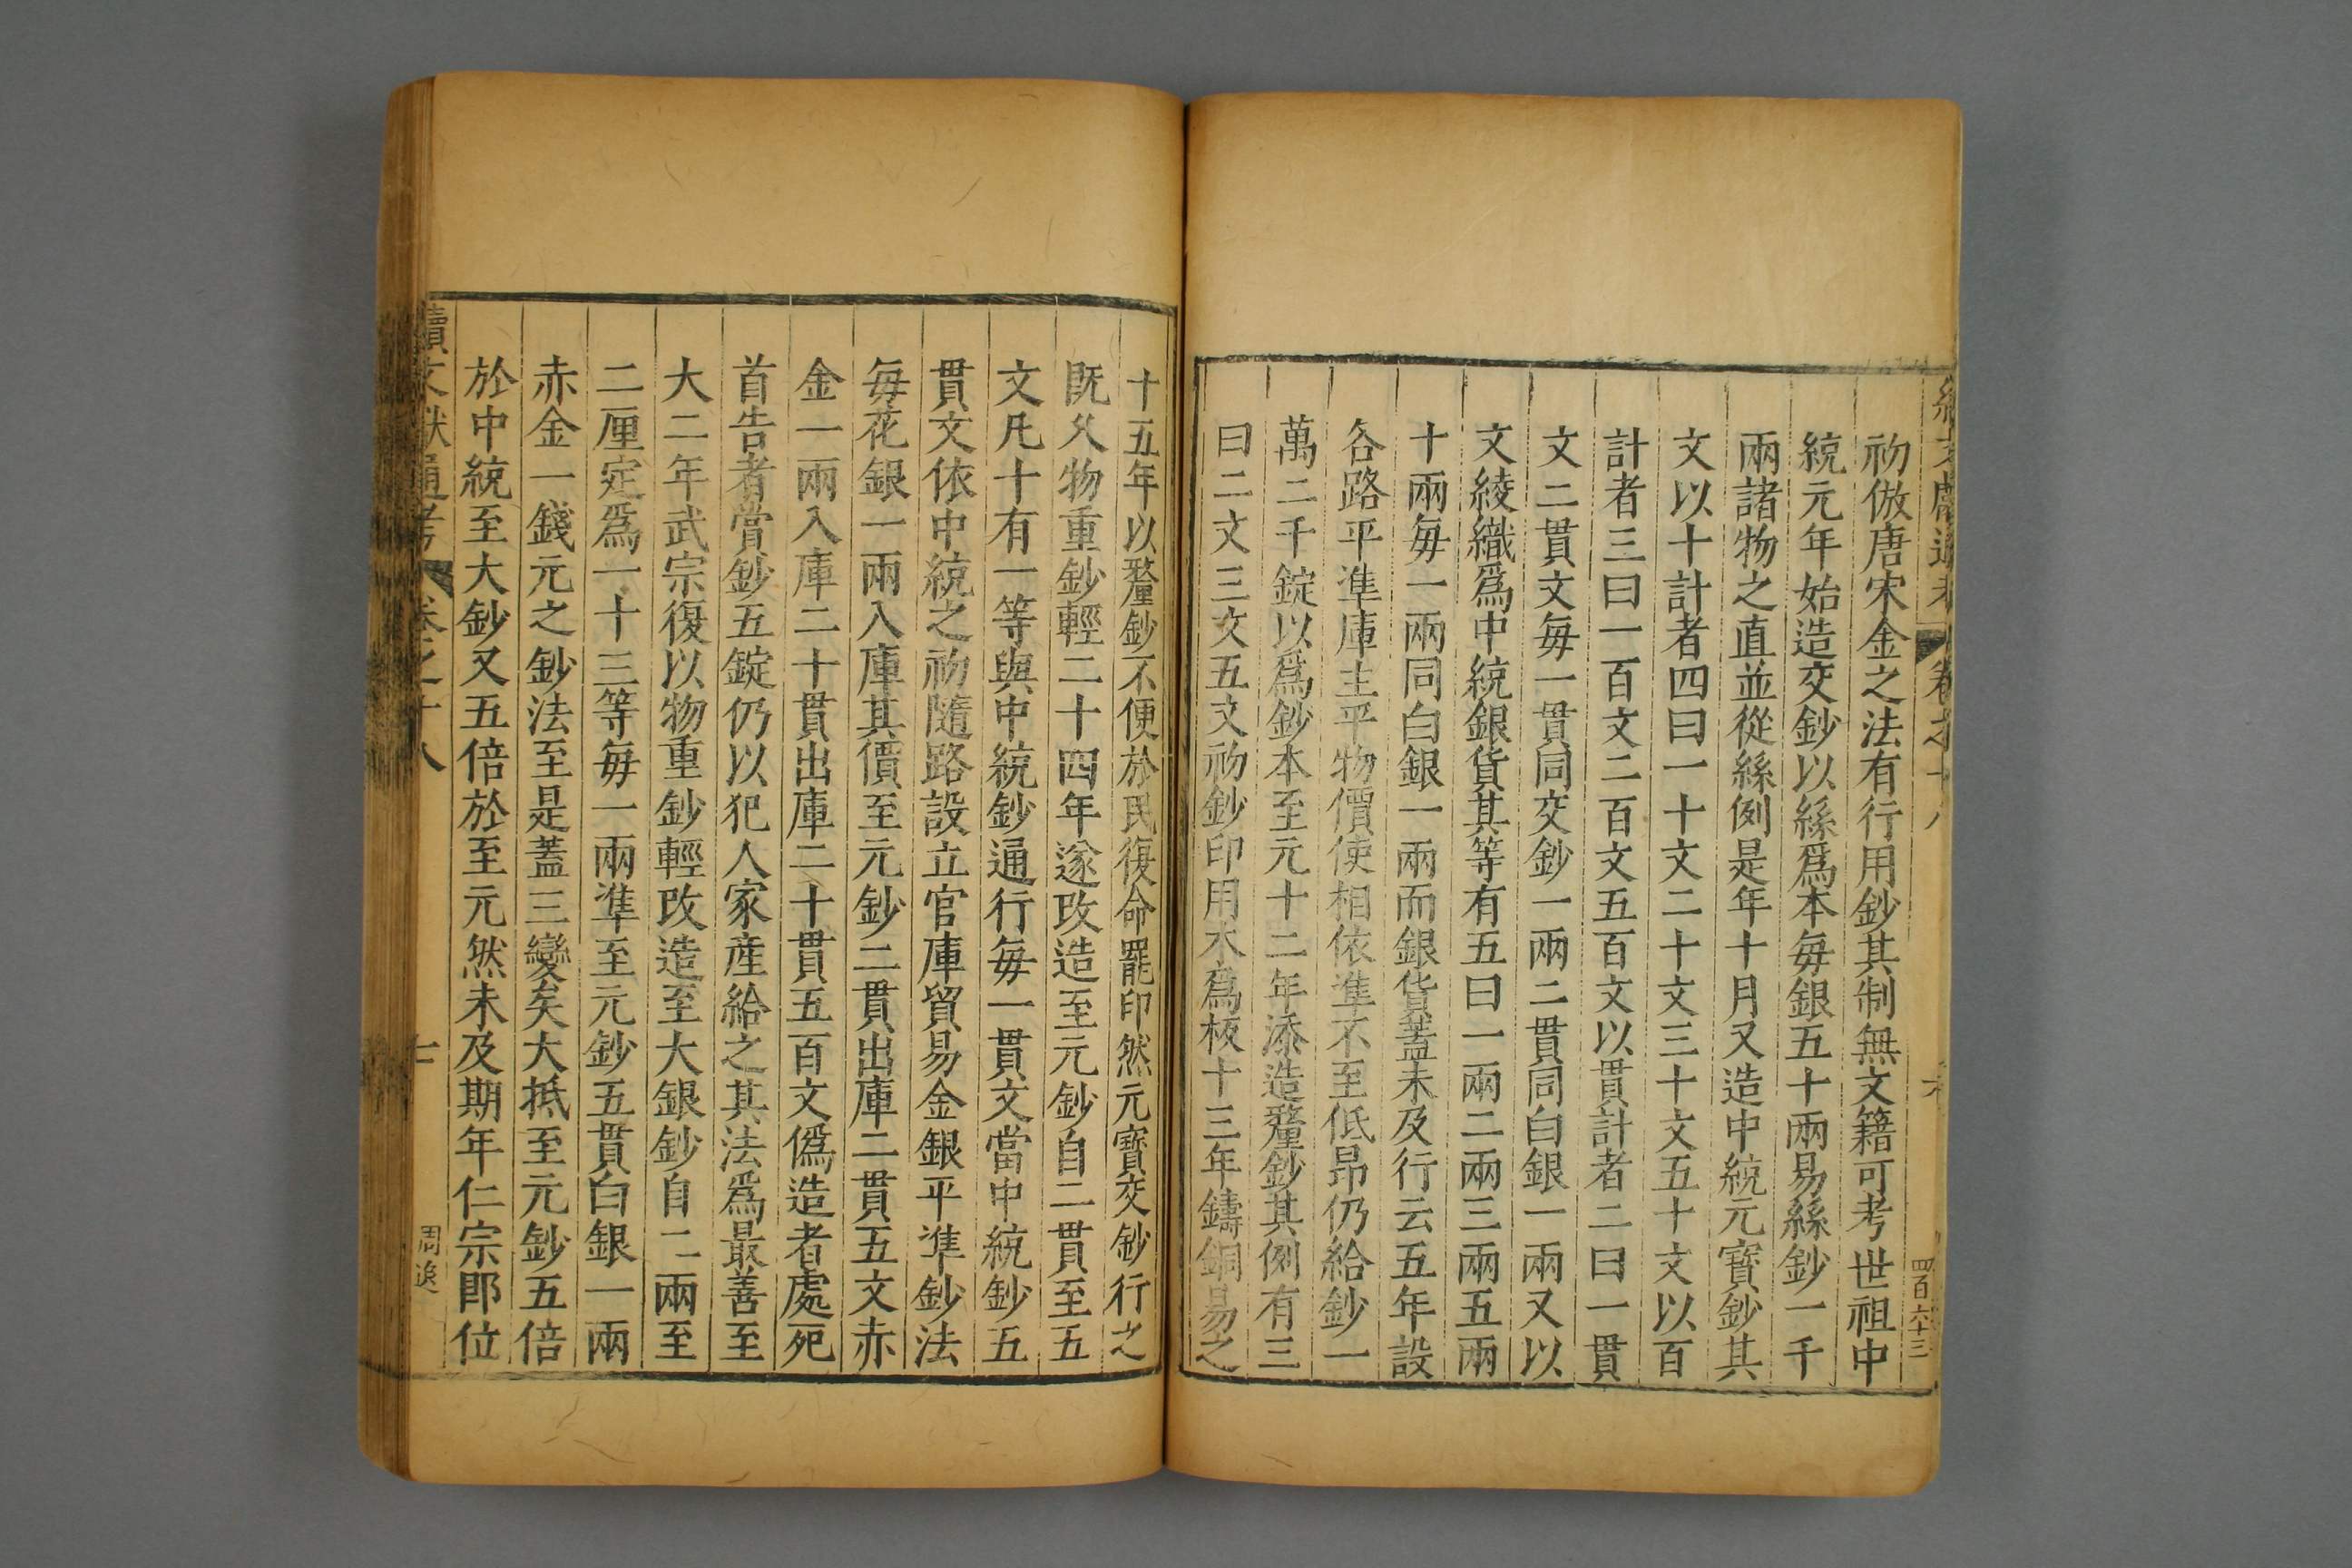 續文獻通考 卷之十八 六 四百六十三
初倣唐宋金之法有行用鈔其制無文籍可考世祖中
統元年始造交鈔以絲爲本每銀五十兩易絲鈔一千
兩諸物之直並從絲例是年十月又造中統元寶鈔其
文以十計者四曰一十文二十文三十文五十文以百
計者三曰一百文二百文五百文以貫計者二曰一貫
文二貫文每一貫同交鈔一兩二貫同白銀一兩又以
文綾織爲中統銀貨其等有五曰一兩二兩三兩五兩
十兩每一兩同白銀一兩而銀貨蓋未及行云五年設
各路平準庫主平物價使相依準不至低昻仍給鈔一
萬二千錠以爲鈔本至元十二年添造釐鈔其例有三
曰二文三文五文初鈔印用木爲板十三年鑄銅易之
十五年以釐鈔不便於民復命罷印然元寶交鈔行之
旣久物重鈔輕二十四年遂改造至元鈔自二貫至五
文凡十有一等與中統鈔通行每一貫文當中統鈔五
貫文依中統之初隨路設立官庫貿易金銀平準鈔法
每花銀一兩入庫其價至元鈔二貫出庫二貫五文赤
金一兩入庫二十貫出庫二十貫五百文僞造者處死
首告者賞鈔五錠仍以犯人家產給之其法爲最善至
大二年武宗復以物重鈔輕改造至大銀鈔自二兩至
二厘定爲一十三等每一兩準至元鈔五貫白銀一兩
赤金一錢元之鈔法至是蓋三變矣大抵至元鈔五倍
於中統至大鈔又五倍於至元然未及期年仁宗卽位
續文獻通考 卷之十八 七 周